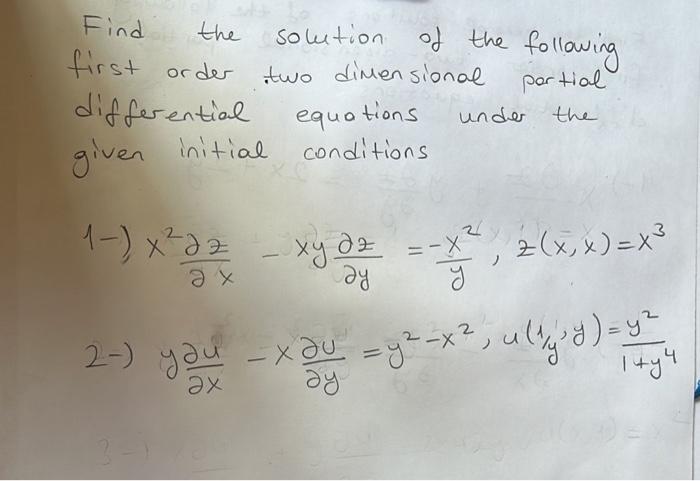 Find the solution of the following
first order two dimensional partial
differential equations under the
given initial conditions
1-) x² ∂z/∂x - xy ∂z/∂y = -x²/y, z(x,x)=x³
2-) y ∂u/∂x - x ∂u/∂y = y²-x², u(1/y, y) = y²/1+y⁴